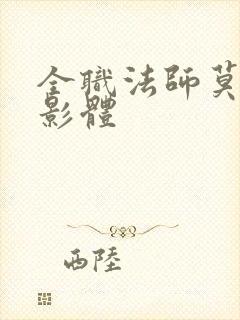 全職法師莫
影體
西陸